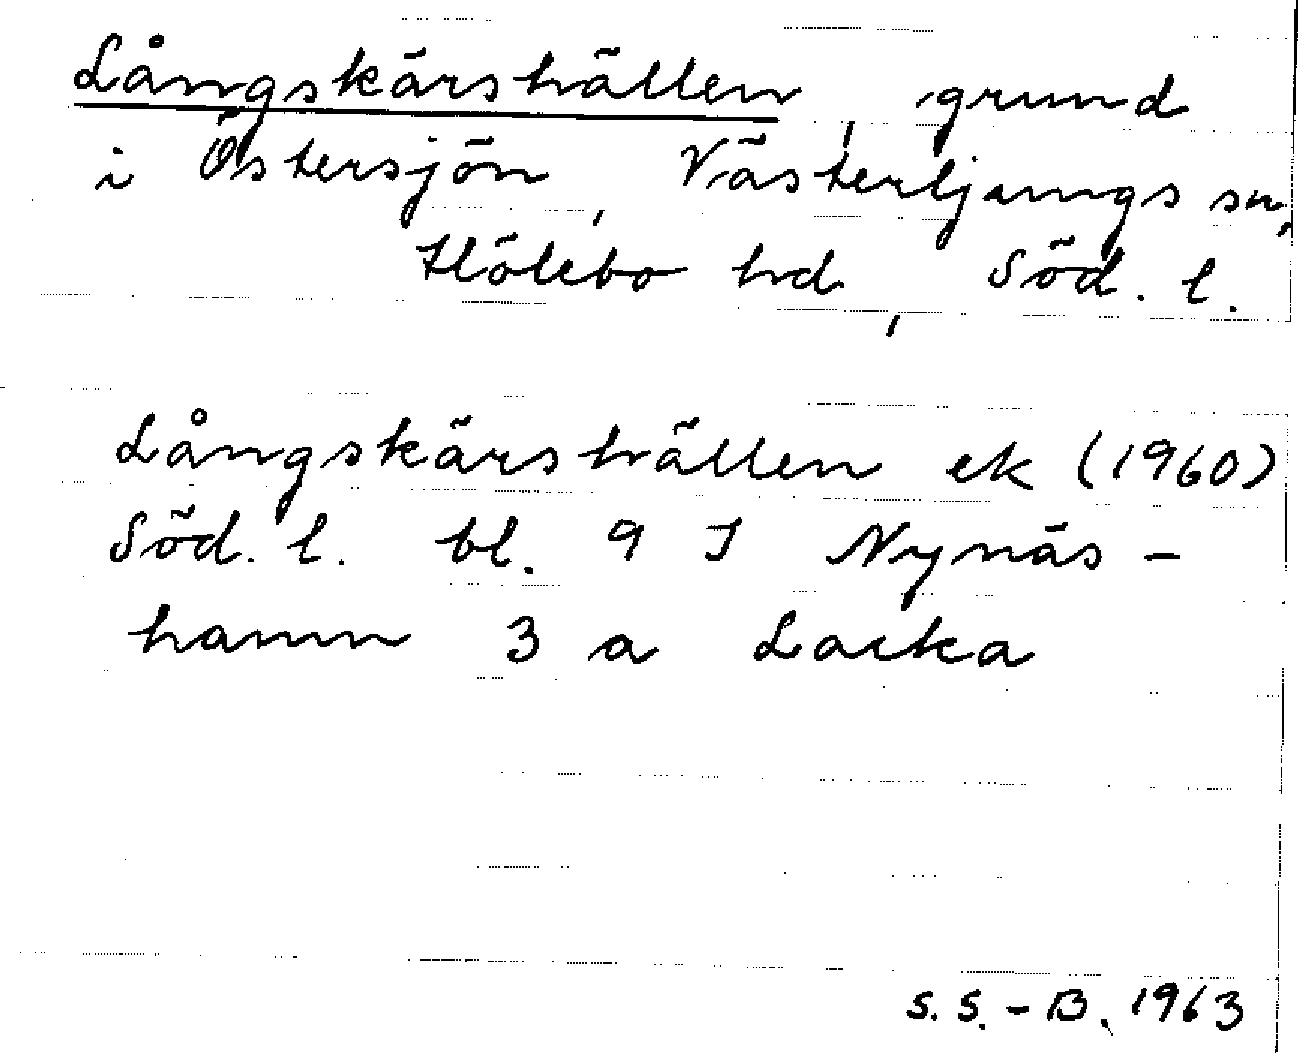 Långskärshällen, grund
i Östersjön, Västerljungs sn,
Hölebo hd, Söd. l.
Långskärshällen ek (1960)
Söd. l. bl. 9 I Nynäs-
hamn 3 a Lacka
S. S.-B. 1963